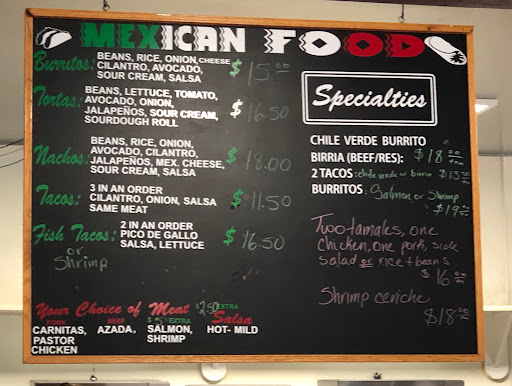 MEXICAN FOOD
Burritos: BEANS, RICE, ONION, CHEESE
CILANTRO, AVOCADO,
SOUR CREAM, SALSA
$15.00
Tortas: BEANS, LETTUCE, TOMATO,
AVOCADO, ONION,
JALAPEÑOS, SOUR CREAM,
SOURDOUGH ROLL
$16.50
Nachos: BEANS, RICE, ONION,
AVOCADO, CILANTRO,
JALAPEÑOS, MEX. CHEESE,
SOUR CREAM, SALSA
$18.00
Tacos: 3 IN AN ORDER
CILANTRO, ONION, SALSA
SAME MEAT
$11.50
Fish Tacos: 2 IN AN ORDER
PICO DE GALLO
SALSA, LETTUCE
$16.50
or
Shrimp
Your Choice of Meat $2.50 EXTRA Salsa
PORK BEEF $ EXTRA
CARNITAS, AZADA, SALMON, HOT- MILD
PASTOR SHRIMP
CHICKEN
Specialties
CHILE VERDE BURRITO
BIRRIA (BEEF/RES): $18.00
2 TACOS: chile verde or birria $13.00
BURRITOS: Salmon or Shrimp
$19.00
Two tamales, one
chicken, one pork, side
salad or rice + beans
$16.00
Shrimp ceviche
$18.00